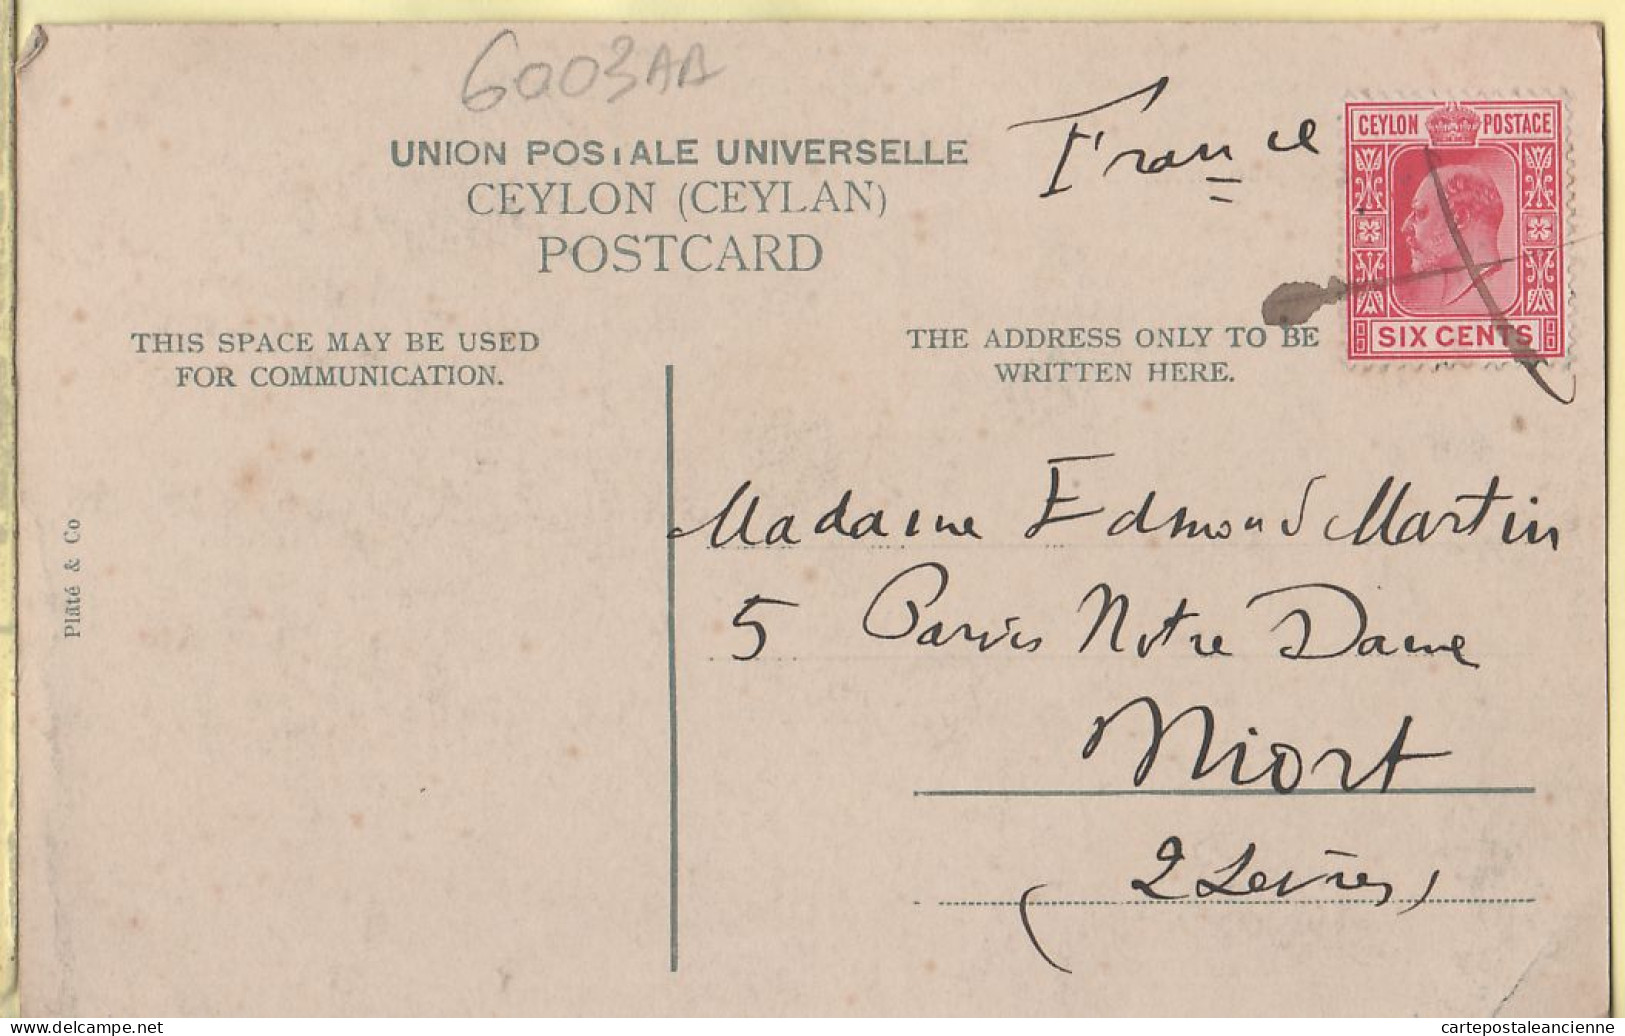 6003AA
UNION POSTALE UNIVERSELLE
CEYLON (CEYLAN)
POSTCARD
France
CEYLON POSTAGE
SIX CENTS
THIS SPACE MAY BE USED
FOR COMMUNICATION.
THE ADDRESS ONLY TO BE
WRITTEN HERE.
Plâté & Co
Madame Edmond Martin
5 Parvis Notre Dame
Niort
(2 Sèvres)
delcampe.net
cartepostaleancienne